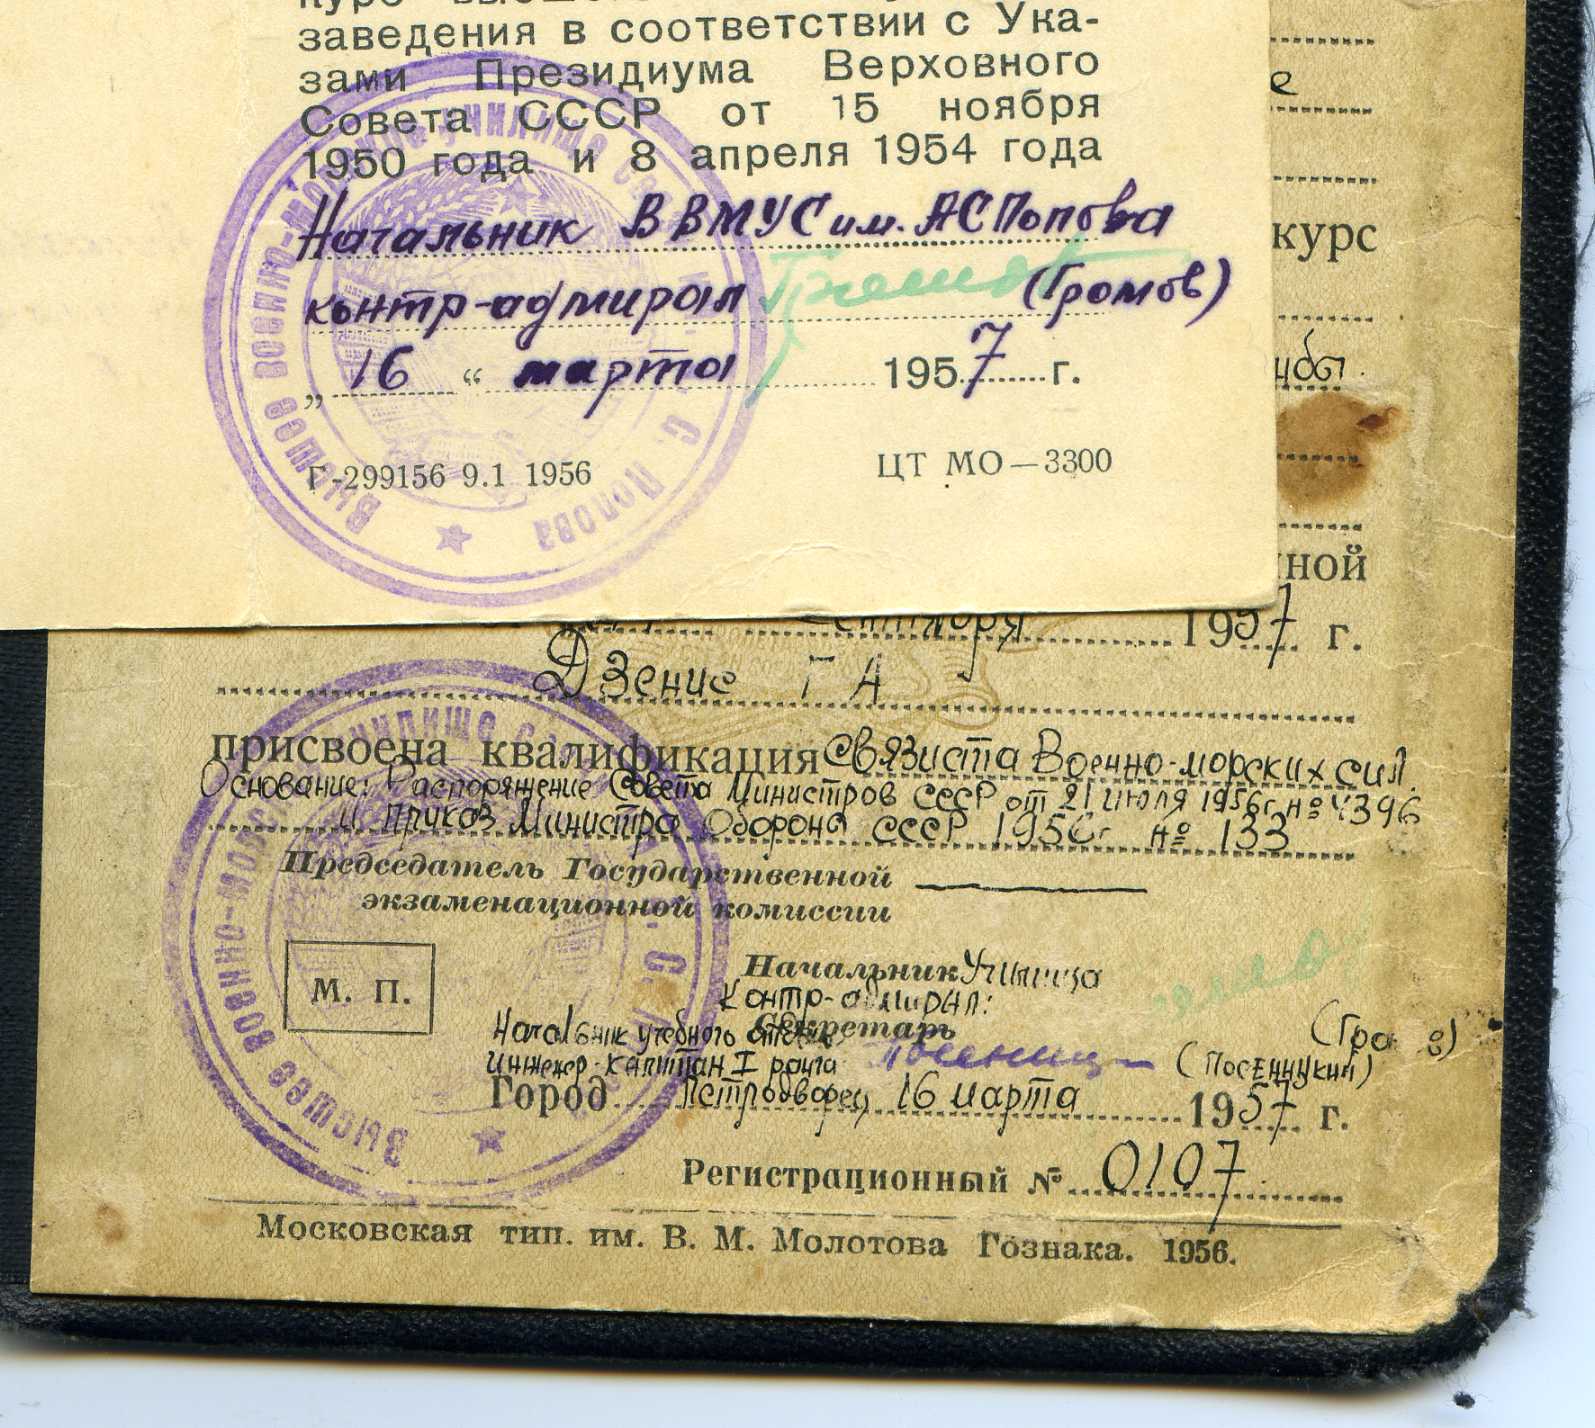 заведения в соответствии с Ука-
зами Президиума Верховного
Совета СССР от 15 ноября
1950 года и 8 апреля 1954 года
Начальник ВВМУС им. АС Попова
контр-адмирал (Громов)
„ 16 “ марта 1957 г.
Г-299156 9.1 1956 ЦТ МО—3300
Высшее военно-мор училище С. Попова
курс
ной
1957 г.
Дзенис Г А
присвоена квалификация связиста Военно-морских сил.
Основание: Распоряжение Совета Министров СССР от 21 июля 1956г. №4396
и приказ Министра Обороны СССР 1956г № 133
Председатель Государственной
экзаменационной комиссии
М. П.
Начальник Училища
Контр-адмирал:
Секретарь
Начальник учебного отдела
инженер-капитан I ранга (Посеницкий)
Город Петродворец 16 марта 1957 г.
Регистрационный № 0107
Высшее военно-морс училище С.
Московская тип. им. В. М. Молотова Гознака. 1956.